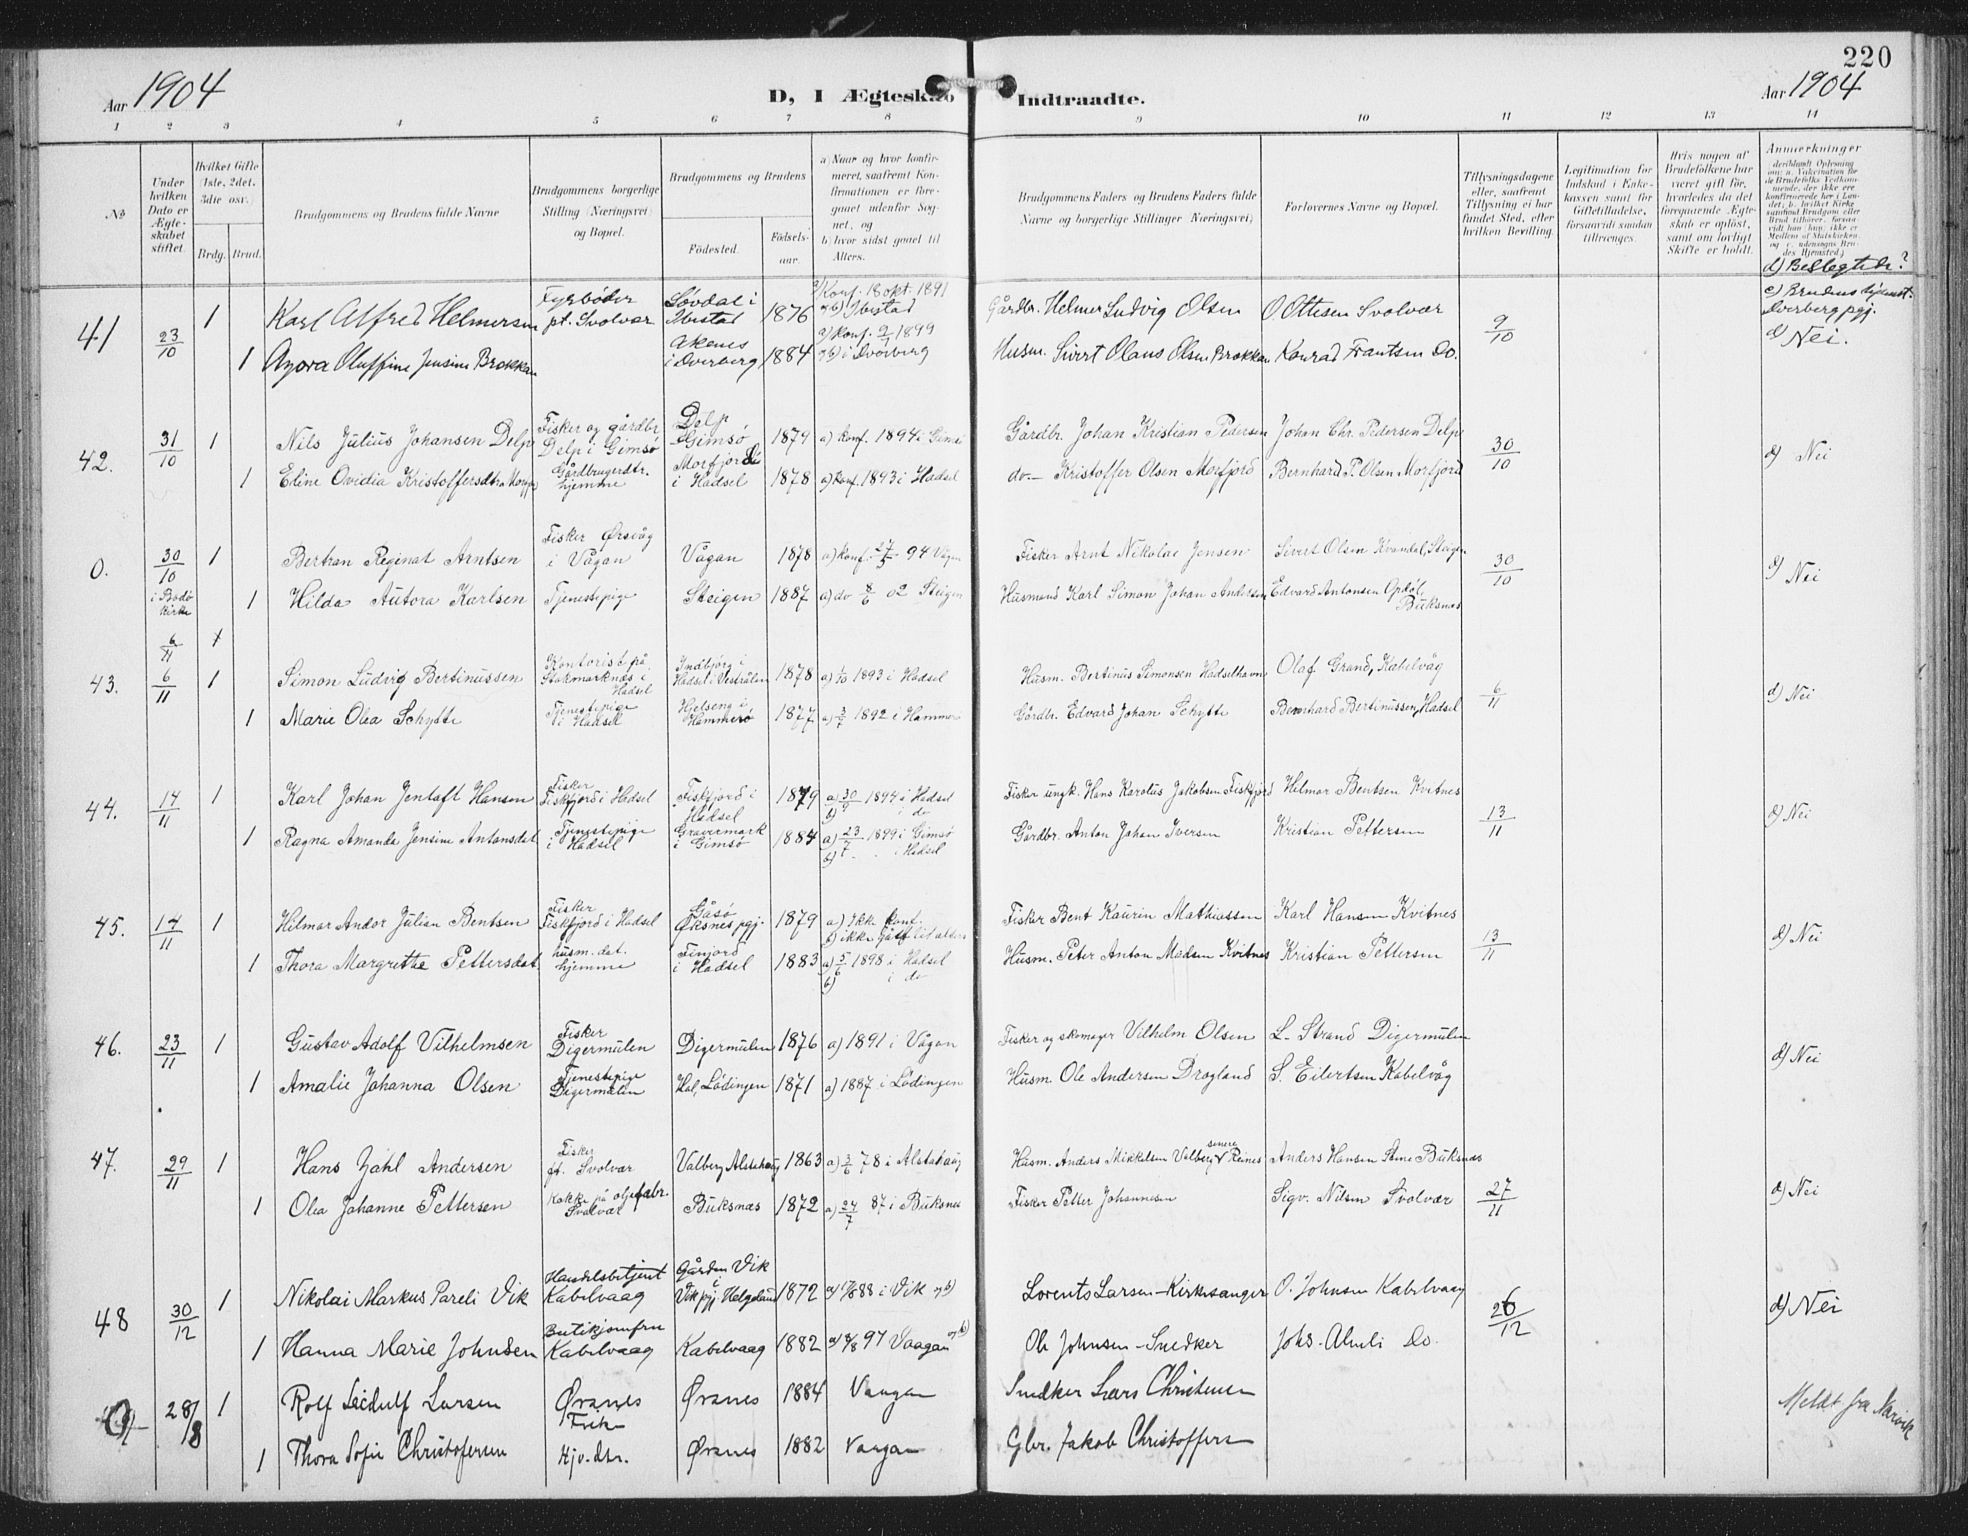 220
Aar 1904
D, I Ægteskab Indtraadte.
Aar 1904
1 2 3 4 5 6 7 8 9 10 11 12 13 14
No
Under hvilken Dato er Ægteskabet stiftet.
Hvilket Gifte (1ste, 2det, 3die osv.)
Brdg. Brud.
Brudgommens og Brudens fulde Navne
Brudgommens borgerlige Stilling (Næringsvei) og Bopæl.
Brudgommens og Brudens
Fødested.
Fødselsaar.
a) Naar og hvor konfirmeret, saafremt Konfirmationen er foregaaet udenfor Sognet, og
b) hvor sidst gaaet til Alters.
Brudgommens Faders og Brudens Faders fulde Navne og borgerlige Stillinger (Næringsvei)
Forlovernes Navne og Bopæl.
Tillysningsdagene eller, saafremt Tillysning ei har fundet Sted, efter hvilken Bevilling.
Legitimation for Indskud i Enkekassen samt for Giftetilladelse, forsaavidt saadan tiltrænges.
Hvis nogen af Brudefolkene har været gift før, hvorledes da det foregaaende Ægteskab er opløst, samt om lovligt Skifte er holdt.
Anmerkninger
d) Beslegtede?
41 23/10 1 Karl Alfred Helmersen Fyrbøder pt. Svolvær Løvdal i Ibestad 1876 a) Konf. 18 okt. 1891 og b) Ibestad Gårdbr. Helmer Ludvig Olsen O Ottesen Svolvær 9/10 c) Brudens hjemst. Dverberg pgj. d) Nei.
1 Agora Oluffine Jensine Brokkan Åkenes i Dverberg 1884 a) konf. 9/7 1899 og b) i Dverberg Husm. Sivert Olaus Olsen Brokkan Konrad Frantsen Do.
42. 31/10 1 Nils Julius Johansen Delp Fisker og gårdbr Delp i Gimsø Delp Gimsø 1879 a) konf. 1894 i Gimsø Gårdbr. Johan Kristian Pedersen Johan Chr. Pedersen Delp 30/10 d) Nei
1 Eline Ovidia Kristoffersdtr Morfj Gårdbrugerdtr. hjemme Morfjord i Hadsel 1878 a) konf. 1893 i Hadsel do.- Kristoffer Olsen Morfjord Bernhard P. Olsen Morfjord
0. 30/10 i Bodø kirke 1 Bertran Reginat Arntsen Fisker Ørsvåg i Vågan Vågan 1878 a) konf. 27/5 94 Vågan Fisker Arnt Nikolai Jensen Sivert Olsen Kvandal, Steigen 30/10 d) Nei
1 Hilda Autora Karlsen Tjenestepige Steigen 1887 a) do 8/6 02 Steigen Husmand Karl Simon Johan Andersen Edvard Antonsen Opdøl, Buksnæs
6/11 1
43. 6/11 1 Simon Ludvig Bertinussen Kontorist på Stokmarknæs i Hadsel Indbjørg i Hadsel i Vestrålen 1878 a) 1/10 1893 i Hadsel Husm. Bertinus Simonsen Hadselhavn Olaf Grand, Kabelvåg 6/11 d) Nei
1 Marie Olea Schytte Tjenestepige i Hadsel Hjelseng i Hammerø 1877 a) 3/7 1892 i Hammerø Gårdbr. Edvard Johan Schytte Bernhard Bertinussen, Hadsel
44. 14/11 1 Karl Johan Jentoft Hansen Fisker Fiskfjord i Hadsel Fiskfjord i Hadsel 1879 a) 30/9 1894 i Hadsel b) " i do Fisker ungk. Hans Karolus Jakobsen Fiskfjord Hilmar Bentsen Kvitnes 13/11 d) Nei
1 Ragna Amanda Jensine Antonsdat Tjenestepige i Hadsel Gravermark i Gimsø 1884 a) 23/7 1899 i Gimsø b) - i Hadsel Gårdbr. Anton Johan Iversen Kristian Pettersen
45. 14/11 1 Hilmar Andor Julian Bentsen Fisker Fiskfjord i Hadsel Gåsø Øksnes pgj. 1879 a) Ikke konf. b) ikke gået til alters Fisker Bent Kaurin Mathiassen Karl Hansen Kvitnes 13/11 d) Nei
1 Thora Margrethe Pettersdat. husm. dat. hjemme Finjord i Hadsel 1883 a) 5/6 1898 i Hadsel b) i do Husm. Peter Anton Madsen Kvitnes Kristian Pettersen
46. 23/11 1 Gustav Adolf Vilhelmsen Fisker Digermulen Digermulen 1876 a) 1891 i Vågan Fisker og skomager Vilhelm Olsen L. Strand Digermulen d) Nei
1 Amalie Johanna Olsen Tjenestepige Digermulen Hol, Lødingen 1871 a) 1887 i Lødingen Husm. Ole Andersen Drogland S. Eilertsen Kabelvåg
47. 29/11 1 Hans Zahl Andersen Fisker pt. Svolvær Valberg Alstahaug 1863 a) 3/6 78 i Alstahaug Husm. Anders Mikkelsen Valberg senere Reines Anders Hansen Stene Buksnæs 27/11 d) Nei
1 Olea Johanne Pettersen Kokke på oljefabr. Svolvær Buksnæs 1872 a) 24/7 87 i Buksnes Fisker Petter Johannesen Sigv. Nilsen Svolvær
48 30/12 1 Nikolai Markus Pareli Vik Handelsbetjent Kabelvaag Gården Vik i Vik pgj. Helgeland 1872 88 i Vik og b) Lorents Larsen - Kirkesanger O. Johnsen Kabelvaag 26/12 d) Nei
1 Hanna Marie Johnsen Butikjomfru Kabelvaag Kabelvaag 1882 97 Vaagan og b) Ole Johnsen - Snedker Johs. Almli Do.
0 28/8 1 Rolf Leidulf Larsen Ørsnes Ørsnes 1884 Vaagan Snedker Lars Christensen Meldt fra Narvik
1 Thora Sofie Christofersen Hjv. dtr. Ørsnes 1882 Vaagan Gbr. Jakob Christoffersen